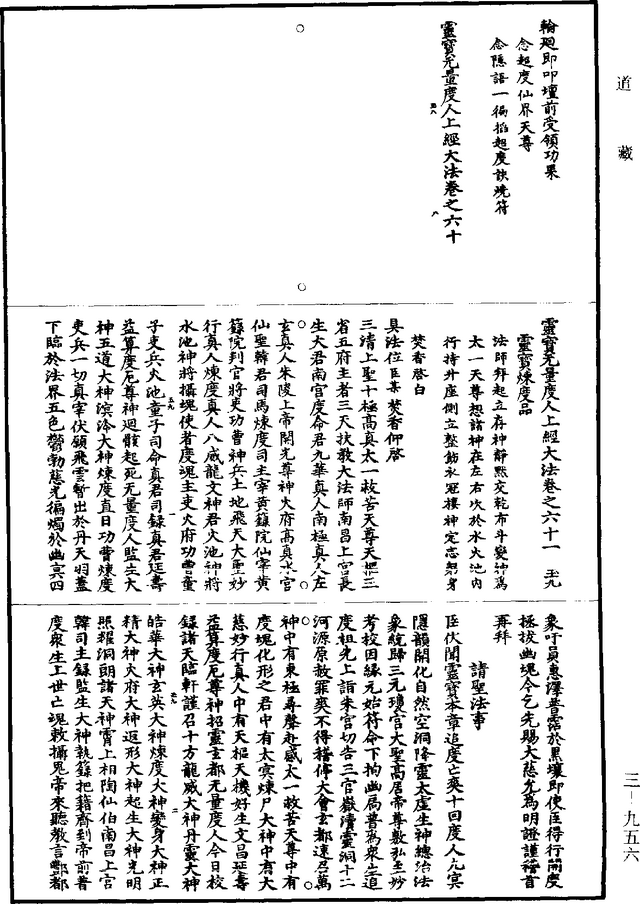 道藏
輪廻即叩壇前受領功果
念超度仙界天尊
念隱語一徧掐超度訣燒符
靈寶无量度人上經大法卷之六十
靈寶无量度人上經大法卷之六十一
靈寶煉度品
法師拜起立存神靜默交乾布斗變神為
太一天尊想諸神在左右次於水火池內
行持升座側立整飭衣冠棲神定志
焚香啓白
具法位臣某焚香仰啓
三清上聖十極高真太一救苦天尊天樞三
省五府主者三天扶教大法師南昌上宮長
生大君南宮度命君九華真人南極真人左
玄真人朱陵上帝開光尊神火府高真水官
仙聖韓君司馬煉度司主宰黃籙院仙宰黃
籙院判官將吏功曹神兵土地飛天大聖妙
行真人煉度真人八威龍文神君火池神將
水池神將攝魂使者度魂主吏火府功曹童
子吏兵火池童子司命真君司錄真君延壽
益算度厄尊神迴骸起死无量度人監生大
神五道大神溟泠大神煉度直日功曹煉度
吏兵一切真宰伏願飛雲暫出於丹天羽蓋
下臨於法界五色鬱勃慈光徧燭於幽冥四
象吁員惠澤普霑於黑壤即使臣得行開度
拯拔幽魂今乞先賜大慈允為明證謹稽首
再拜
請聖法事
臣伏聞靈寶本章追度亡爽十回度人凡冥
隱韻開化自然空洞降靈太虛生神總治法
象統歸三元瓊宮大聖高居帝尊敷弘至妙
考校因緣元始符命下拘幽局普為衆生追
度祖先上詣朱宮切告三官嶽瀆靈洞十二
河源原赦罪爽不得稽停大會玄都速召萬
神中有東極尋聲赴感太一救苦天尊中有
度魂化形之君中有太冥煉尸大神中有大
慈妙行真人中有天樞天機好生文昌延壽
益算度厄尊神招靈玄都无量度人今日校
錄諸天臨軒謹召十方龍威大神丹靈大神
皓華大神玄英大神煉度大神變身大神正
精大神火府大神返形大神起生大神光明
照耀洞朗諸天神霄上相陶仙伯南昌上宮
韓司主錄監生大神執籙把籍齊到帝前普
度衆生上世亡魂敕攝鬼帝來聽教言酆都
三—九五六